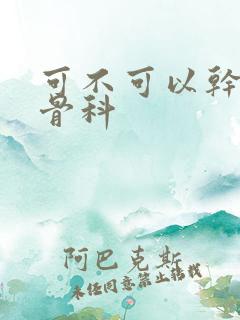 可不可以幹
骨科
阿巴克斯
未经同意禁止转载